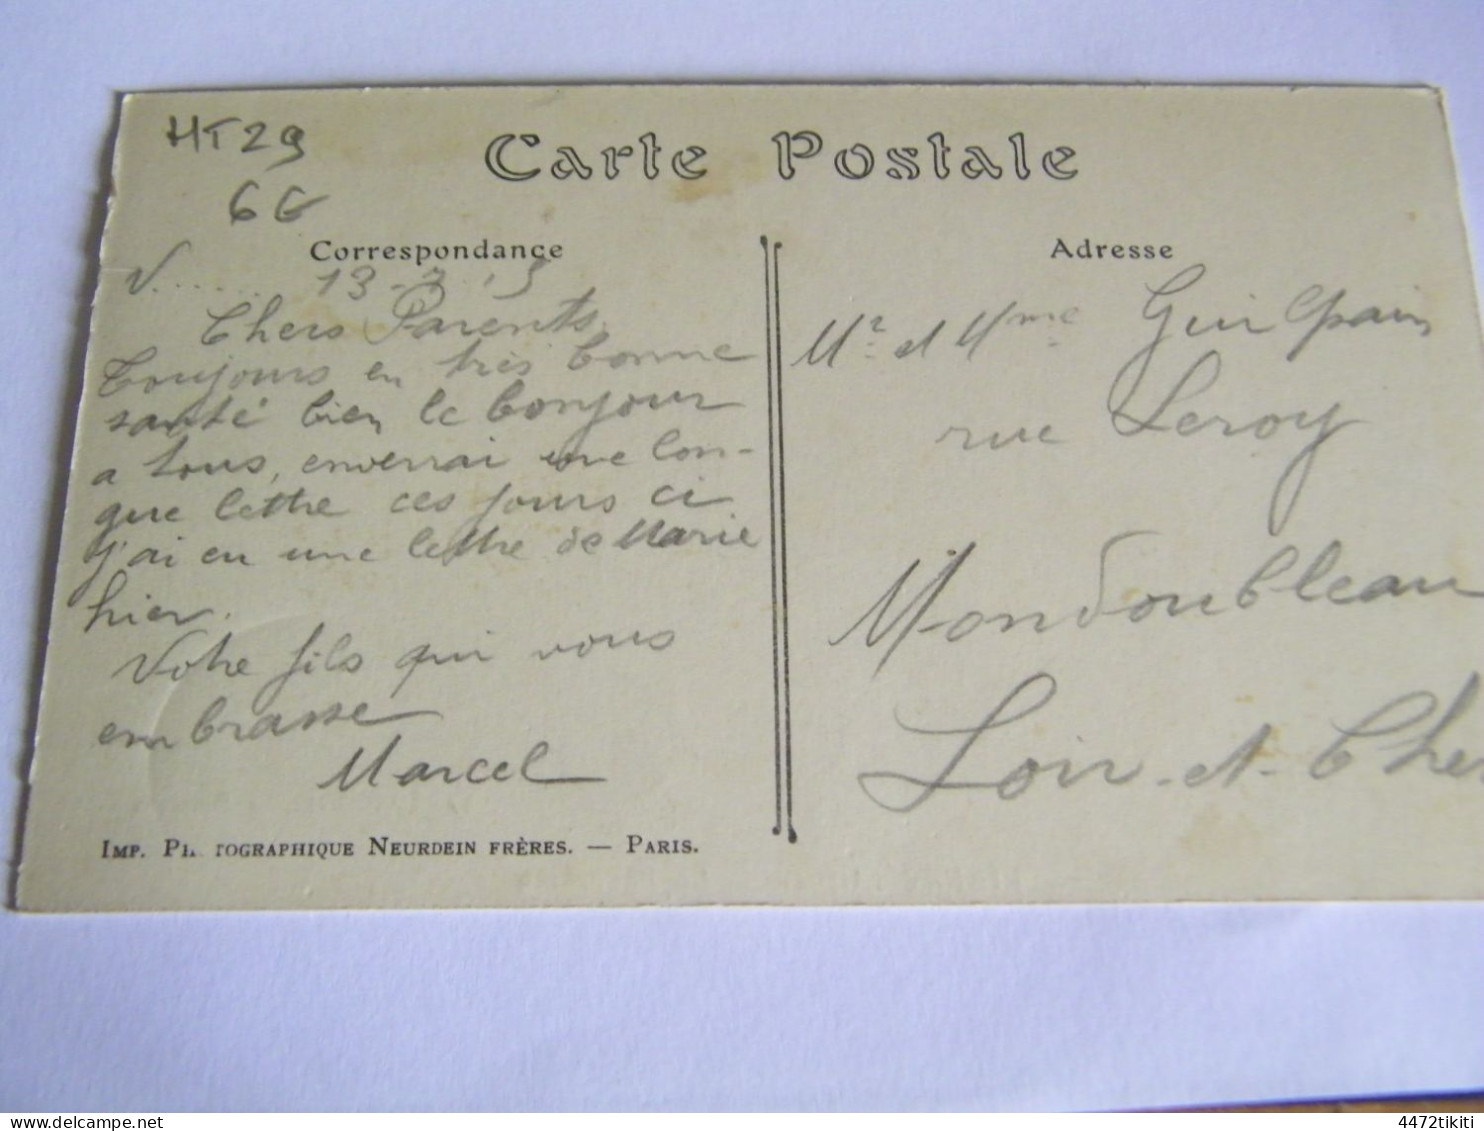 HT29
6G
Carte Postale
Correspondance
V...... 13-3.15
Chers Parents
Toujours en très bonne
santé bien le bonjour
a tous, enverrai une lon-
gue lettre ces jours ci
j'ai eu une lettre de Marie
hier.
Votre fils qui vous
embrasse
Marcel
IMP. PH TOGRAPHIQUE NEURDEIN FRÈRES. — PARIS.
Adresse
Mr et Mme
rue Leroy
Mondoubleau
Loir-et-Cher
© delcampe.net
4472tikiti